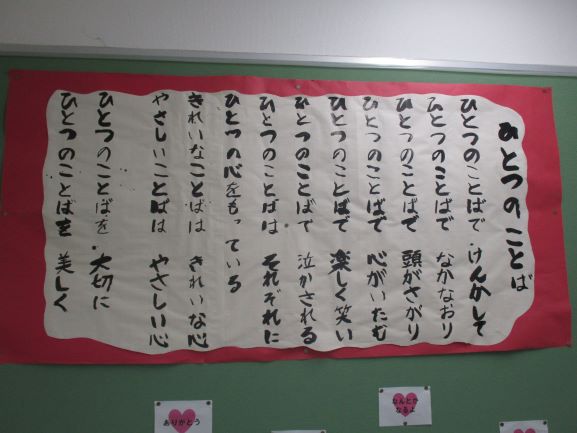 ひとつのことば
ひとつのことばで けんかして
ひとつのことばで なかなおり
ひとつのことばで 頭がさがり
ひとつのことばで 心がいたむ
ひとつのことばで 楽しく笑い
ひとつのことばで 泣かされる
ひとつのことばは それぞれに
ひとつの心をもっている
きれいなことばは きれいな心
やさしいことばは やさしい心
ひとつのことばを 大切に
ひとつのことばを 美しく
ありがとう
なんとか
なるよ